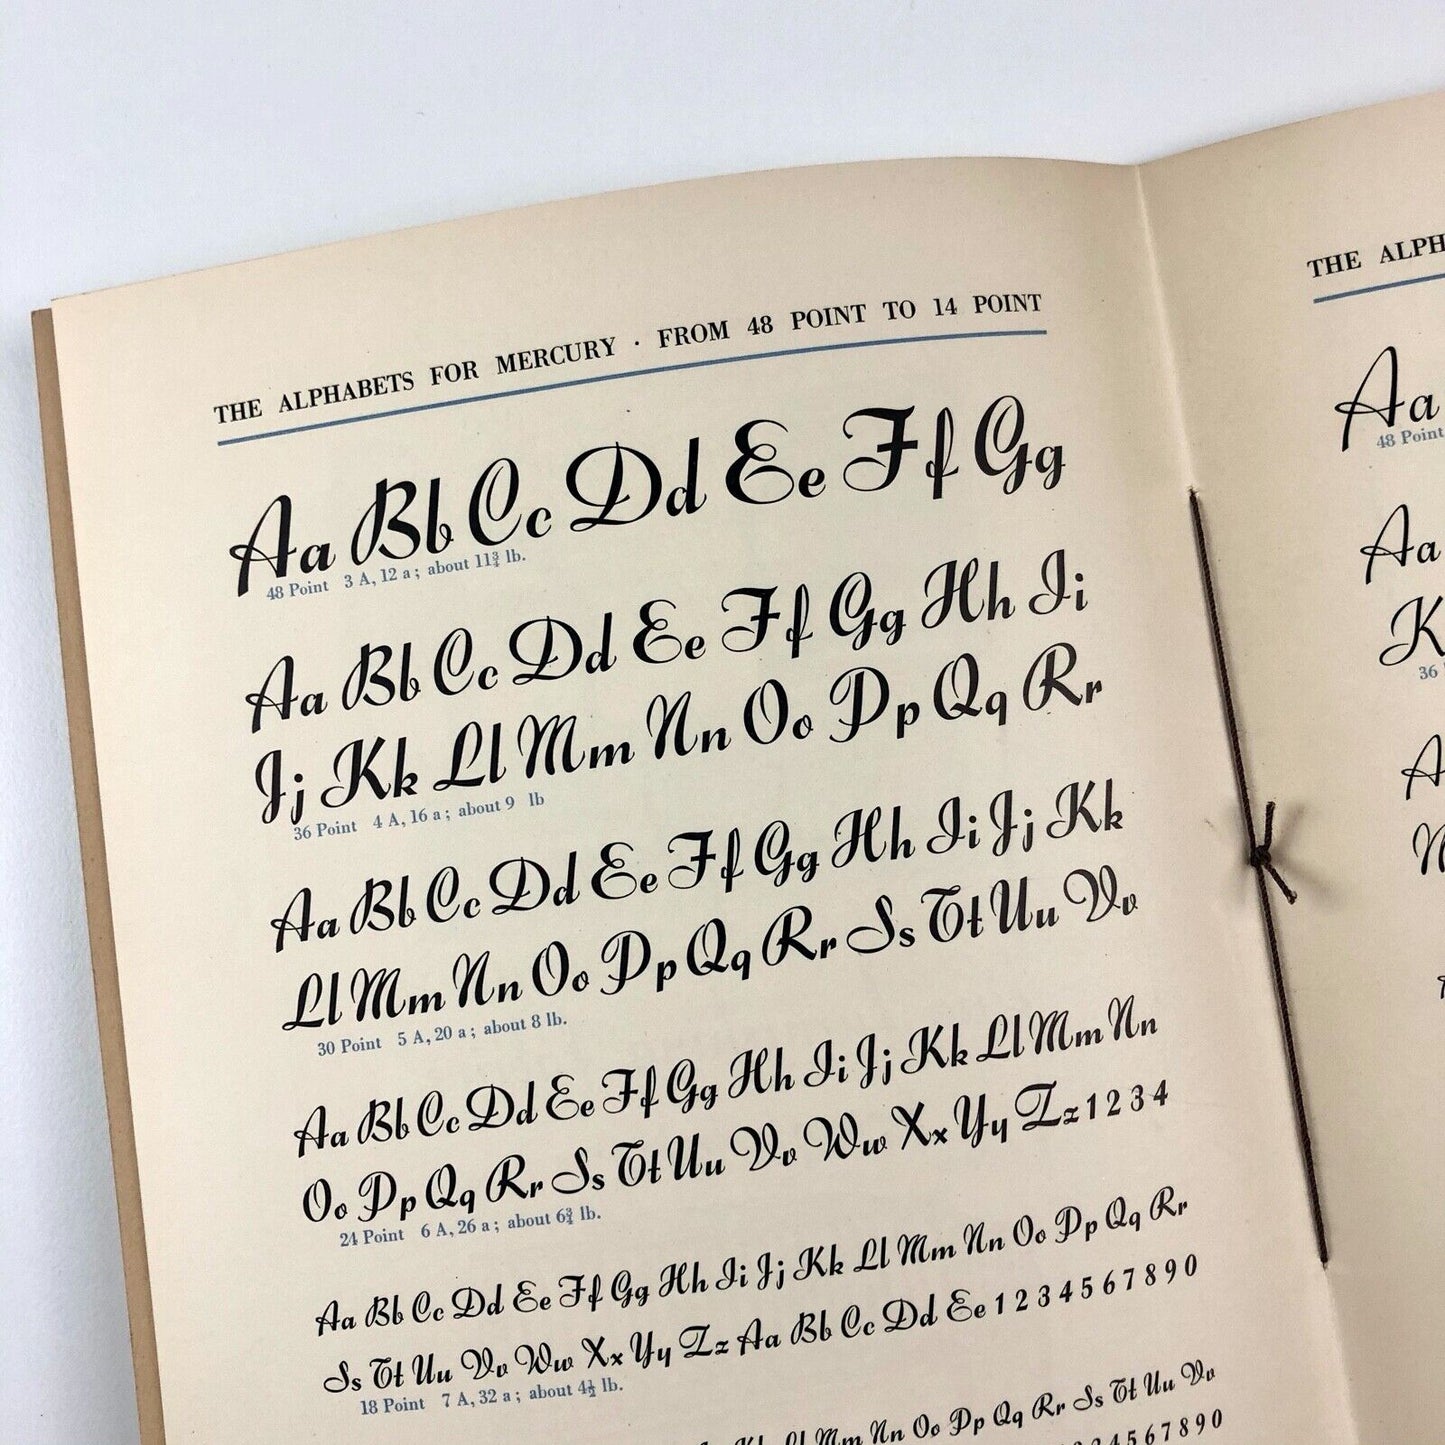 THE ALPHABETS FOR MERCURY · FROM 48 POINT TO 14 POINT
Aa Bb Cc Dd Ee Ff Gg
48 Point 3 A, 12 a; about 11¾ lb.
Aa Bb Cc Dd Ee Ff Gg Hh Ii
Jj Kk Ll Mm Nn Oo Pp Qq Rr
36 Point 4 A, 16 a; about 9 lb
Aa Bb Cc Dd Ee Ff Gg Hh Ii Jj Kk
Ll Mm Nn Oo Pp Qq Rr Ss Tt Uu Vv
30 Point 5 A, 20 a; about 8 lb.
Aa Bb Cc Dd Ee Ff Gg Hh Ii Jj Kk Ll Mm Nn
Oo Pp Qq Rr Ss Tt Uu Vv Ww Xx Yy Zz 1 2 3 4
24 Point 6 A, 26 a; about 6¾ lb.
Aa Bb Cc Dd Ee Ff Gg Hh Ii Jj Kk Ll Mm Nn Oo Pp Qq Rr
Ss Tt Uu Vv Ww Xx Yy Zz Aa Bb Cc Dd Ee 1 2 3 4 5 6 7 8 9 0
18 Point 7 A, 32 a; about 4½ lb.
Kk Ll Mm Nn Oo Pp Qq Rr Ss Tt Uu Vv
4 5 6 7 8 9 0
THE ALPH
Aa
48 Point
Aa
K
36
A